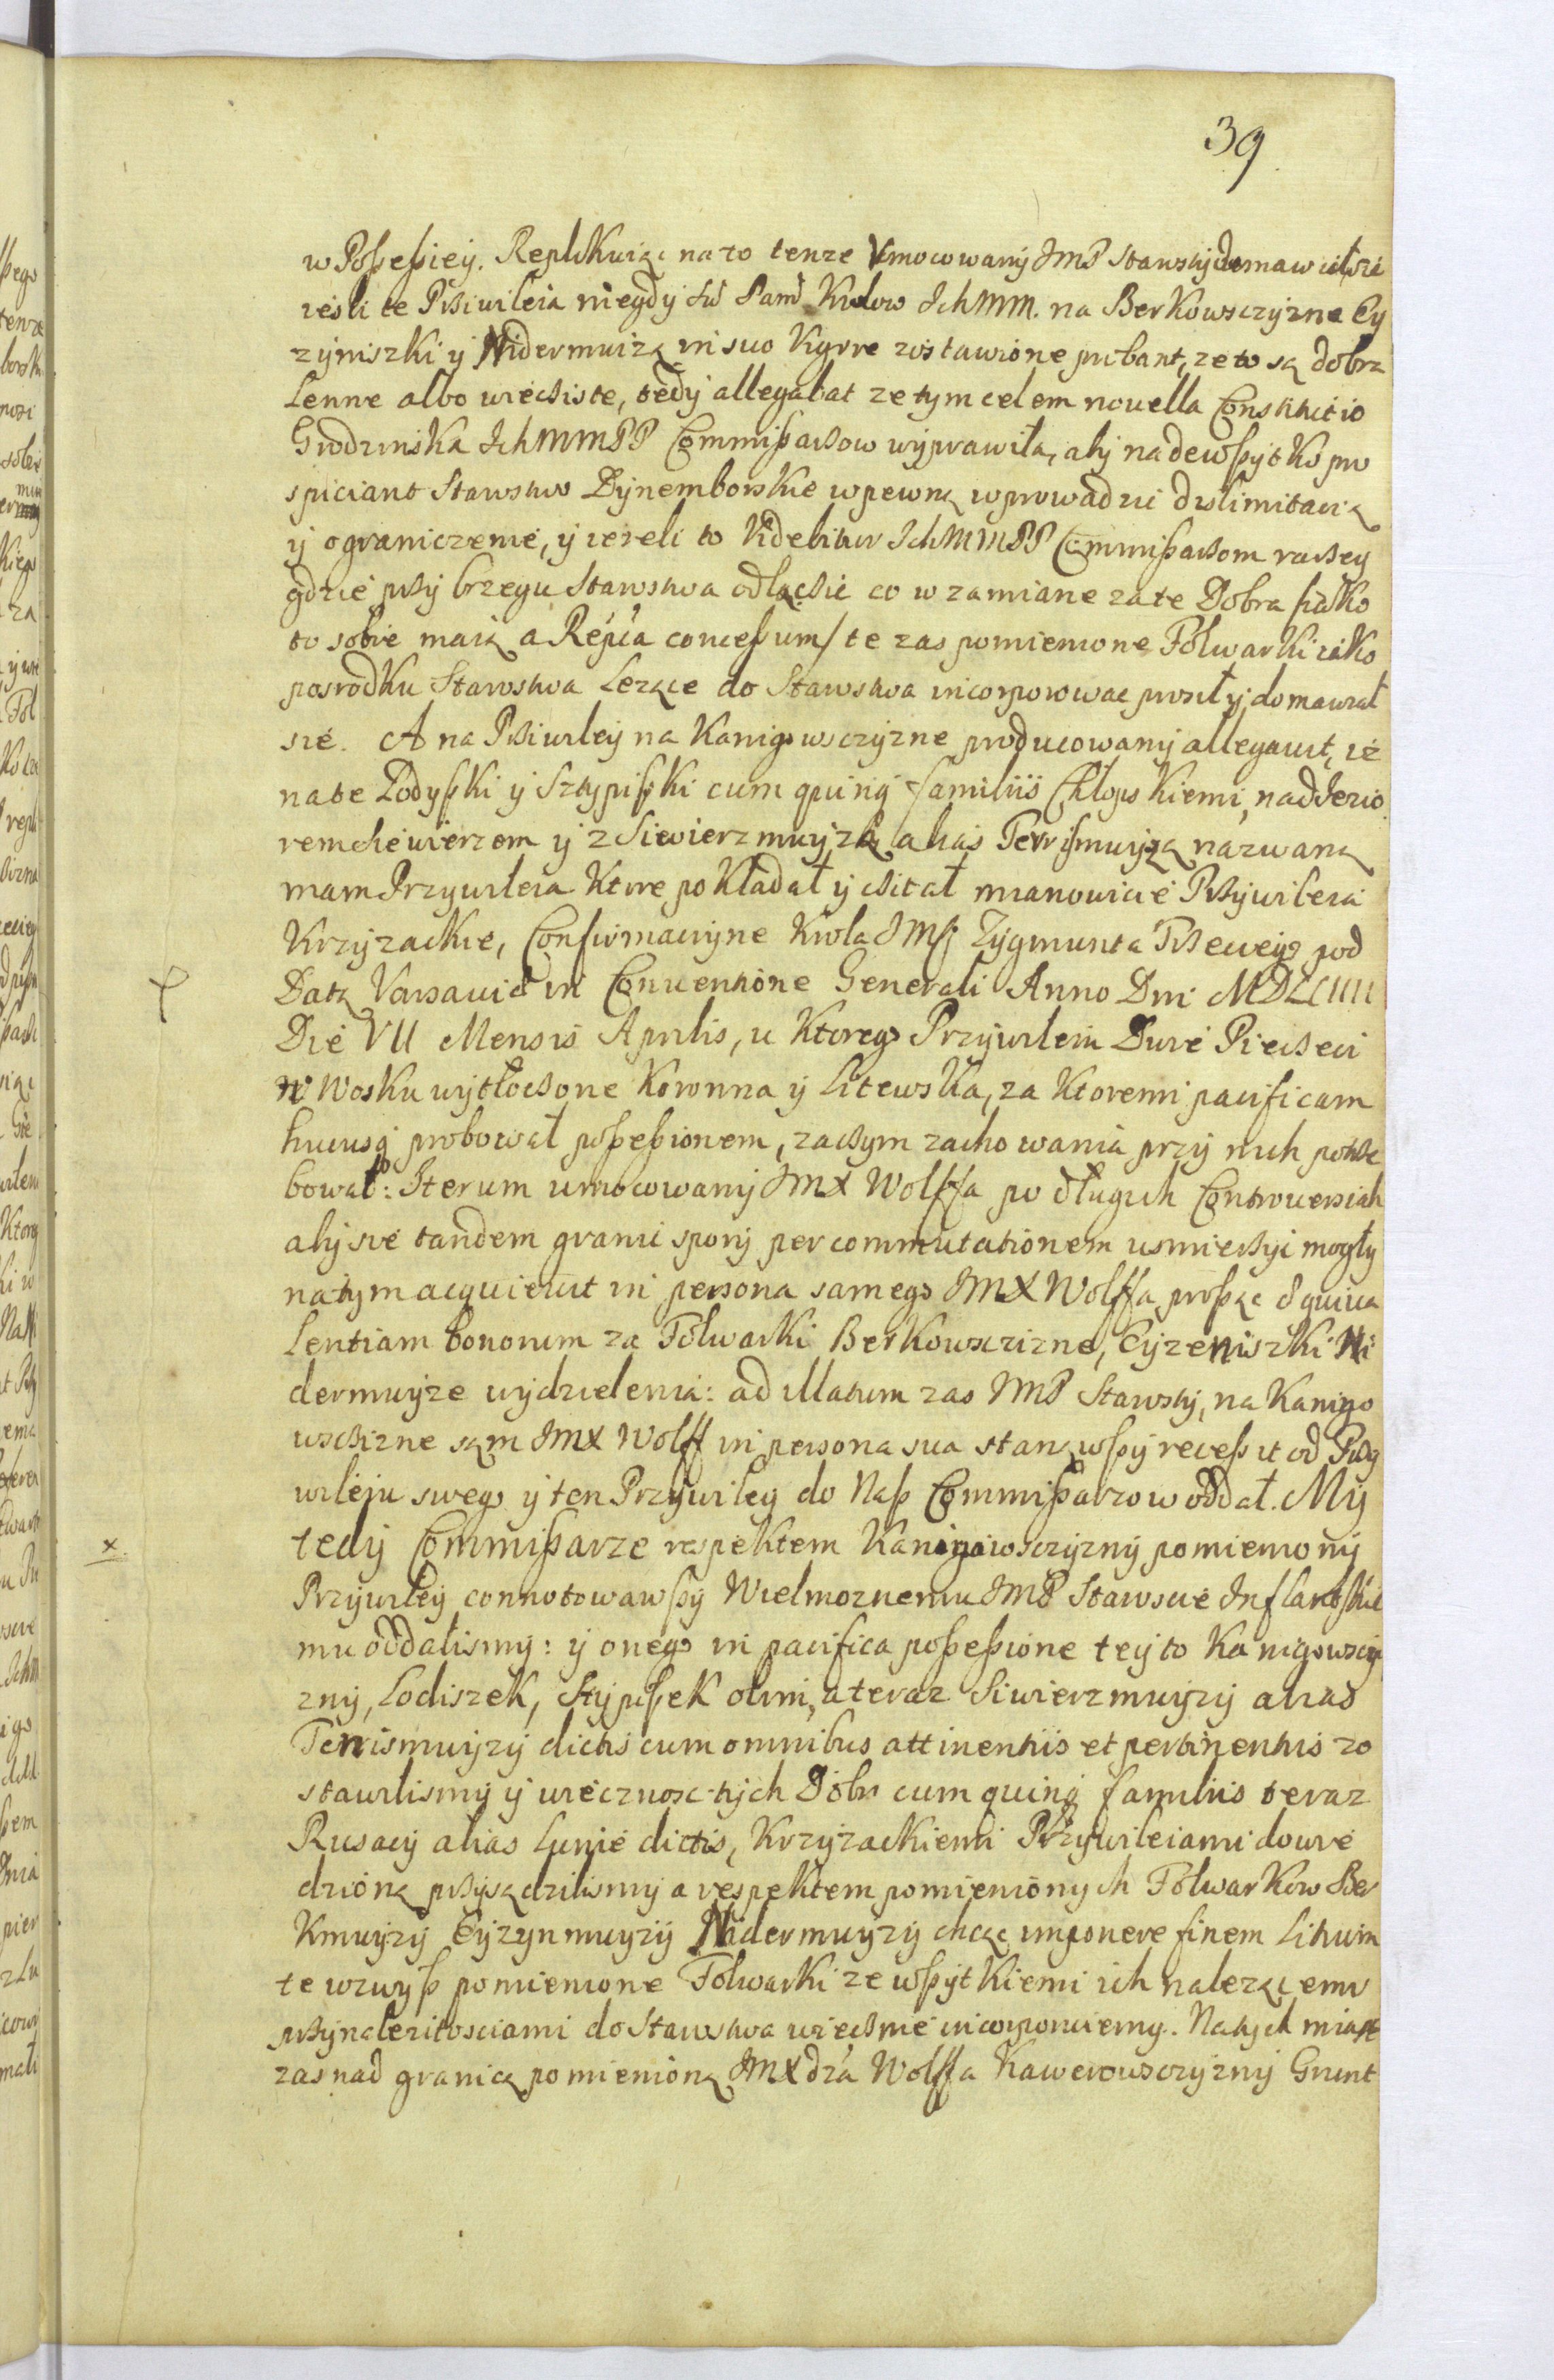 39
w Poßeßiey. Replikuiąc na to tenze Vmocowany JMP Starosty domawiał sie
iesli te Priwileia niegdy Krolow Ich MM. na Berkowszczyzne Ey
zyniszki y Nidermuizą in suo vigore zostawione probant, ze to są dobra
Lenne albo wiecziste, tedy allegabat ze tym celem novella Constitutio
Grodzinska Ich MM PP Commißarzow wyprawiła, aby nadewßytko pro
spiciant Starostwo Dynemborskie w pewną wprowadzic dislimitacią
y ograniczenie, y iezeli to videbitur Ich MM PP Commißarzom raczey
gdzie przy brzegu Starostwa odłączic co w zamiane za te Dobra
to sobie maią a Repca conceßum / te zas pomienione Folwarki iako
posrodku Starostwa Lezące do Starostwa incorporowac prosił y domawiał
sie. A na Priwiley na Kanigowszczyzne producowany allegavit, iz
na te Lodyßki y Sztypißki cum quinq familiis Chłopskiemi, nad Jezio
rem y z Siewierzmuyzą alias Terrismuyzą nazwaną
mam Przywileia Ktore pokładał y czitał mianowicie Przywileia
Krzyzackie, Confirmacyine Krola JMsci Zygmunta Trzeciego pod
Datą Varsaviae in Conventione Generali Anno Dni MDLCIIII
Die VII Mensis Aprilis, u Ktorego Przywileiu Dwie Pieczeci
w Wosku wytłoczone Koronna y Litewska, za Ktoremi pacificam
hucusq probował poßeßionem, zaczym zachowania przy nich potrze
bował: Iterum umocowany JMX Wolffa po długich Controversiach
aby sie tandem granic spory per commutationem usmierzyc mogły
na tym acquievit in persona samego JMX Wolffa proßąc equiva
lentiam bonorum za Folwarki Berkowszczizne, Eyzeniszki Ni
dermuyze wydzielenia: ad illatum zas JMP Starosty, na Kanigo
wszczizne sam JMX Wolff in persona sua stanąwßy receßit od Przy
wileju swego y ten Przywiley do Naß Commißarzow oddał. My
tedy Commißarze respektem Kanigowszczyzny pomieniony
Przywiley connotowawßy Wielmoznemu JMP Staroscie Inflantskie
mu oddalismy: y onego in pacifica poßeßione tey to Kanigowszczy
zny, Lodiszek, Stypißek olim, a teraz Siwierzmuyzy alias
Terrismuyzy dictis cum omnibus attinentiis et pertinentiis zo
stawilismy y wiecznosc tych Dobr cum quinq familiis teraz
Rusacy alias Lunie dictis, Krzyzackiemi Przywileiami dowie
dzioną przysądzilismy a respektem pomienionych Folwarkow Ber
Kmuyzy Eyzynmuyzy Nidermuyzy chcąc imponere finem Litium
te wzwyß pomienione Folwarki ze wßytkiemi ich nalezącemi
przynalezitosciami do Starostwa wiecznie incorporuiemy. Natych miast
zas nad granicą pomienioną JMXdza Wolffa Kawerowszczyzny Grunt